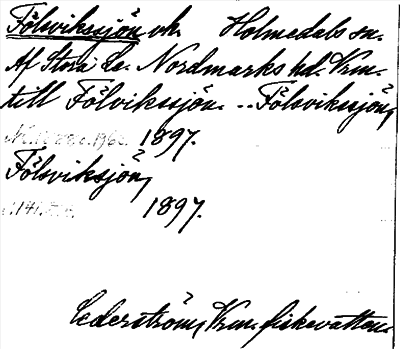 Fölsvikssjön vk Holmedals sn.
Af Stora Le. Nordmarks hd. Vrm.
till Fölvikssjön. -- Fölsvikssjön,
1897.
Fölsviksjön,
1897.
Cederström, Vrm. fiskevatten.